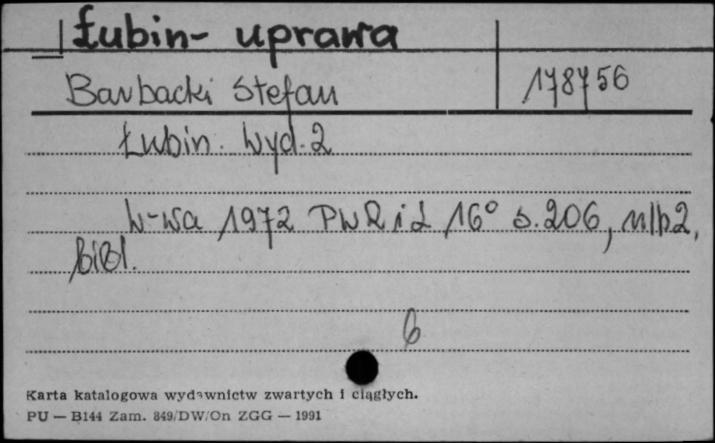 Łubin- uprawa
Barbacki Stefan 178756
Łubin. Wyd. 2
W-wa 1972 PWRiL 16° s. 206, nlb2,
bibl.
6
Karta katalogowa wydawnictw zwartych i ciągłych.
PU — B144 Zam. 849/DW/On ZGG — 1991